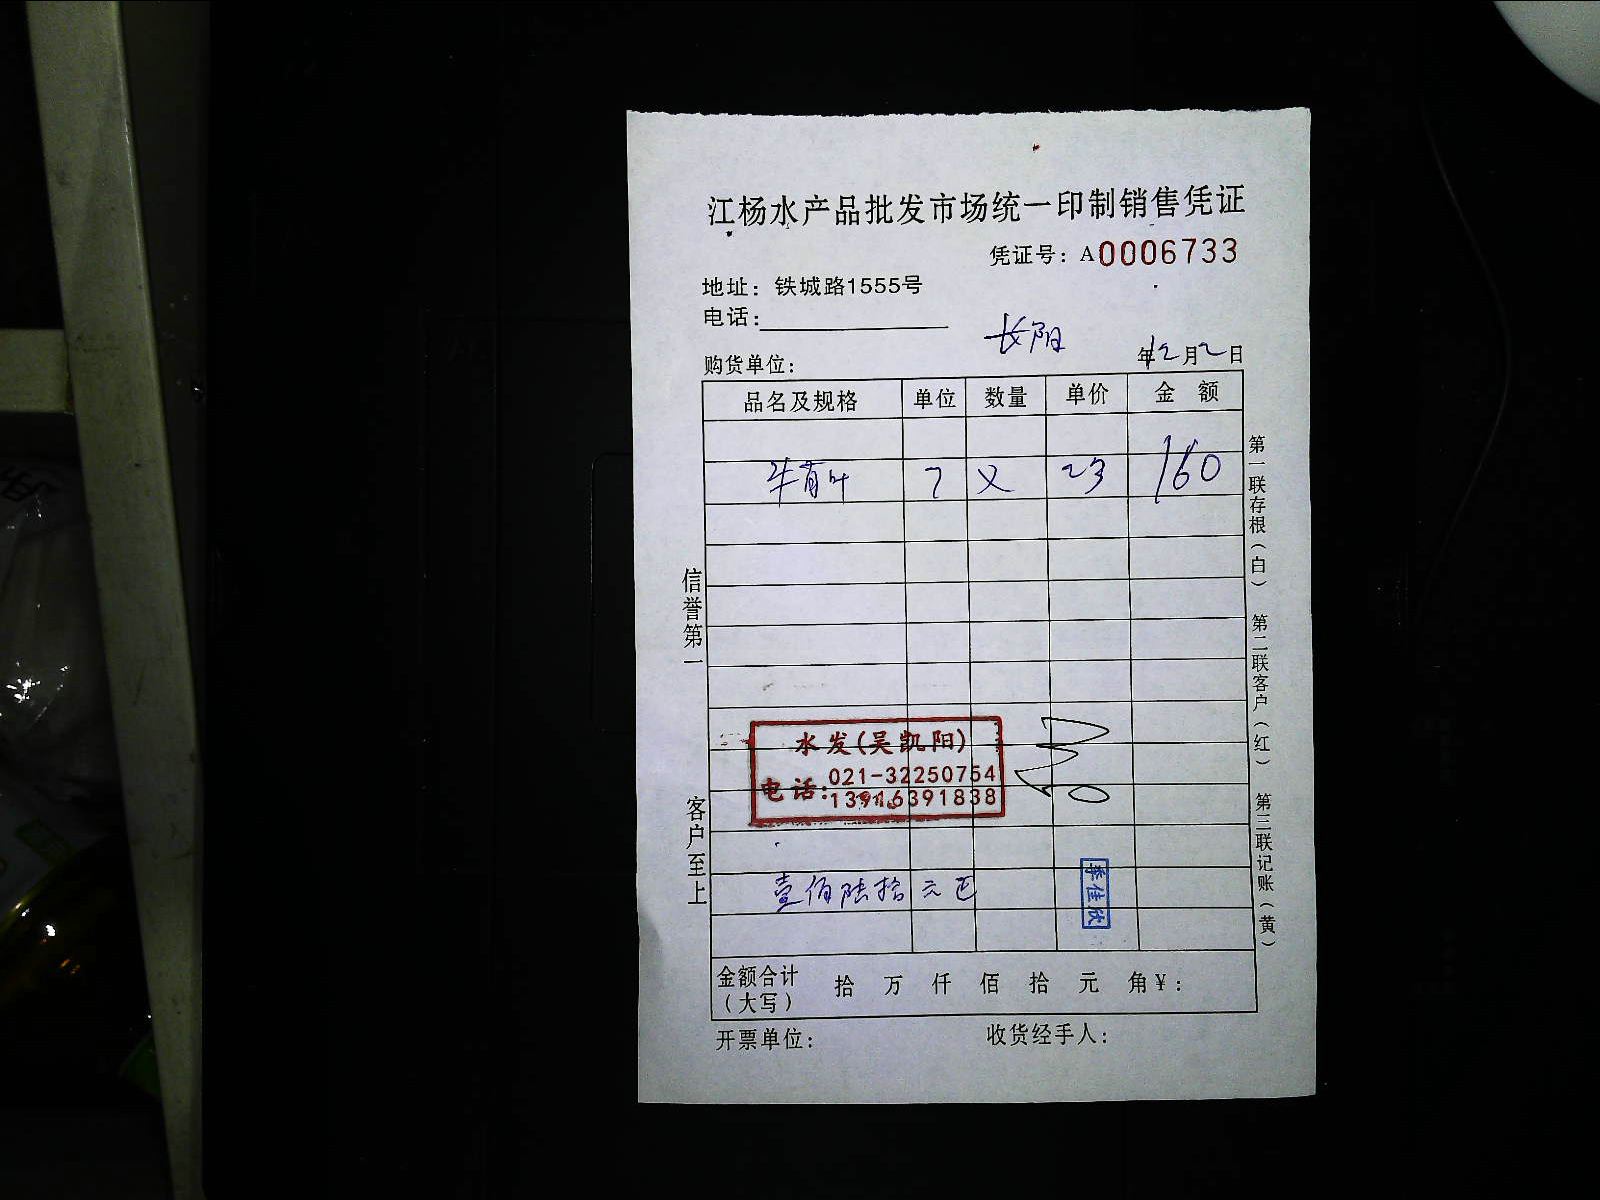 江杨水产品批发市场统一印制销售凭证
凭证号：A0006733
地址：铁城路1555号
电话：
长阳
购货单位：
年12月2日
品名及规格 单位 数量 单价 金 额
7 又 23 160
水发(吴凯阳)
电话：021-32250754
13916391838
壹佰陆拾元正
李佳欣
金额合计
（大写）
拾 万 仟 佰 拾 元 角￥：
开票单位： 收货经手人：
信誉第一
客户至上
第一联存根（白） 第二联客户（红） 第三联记账（黄）